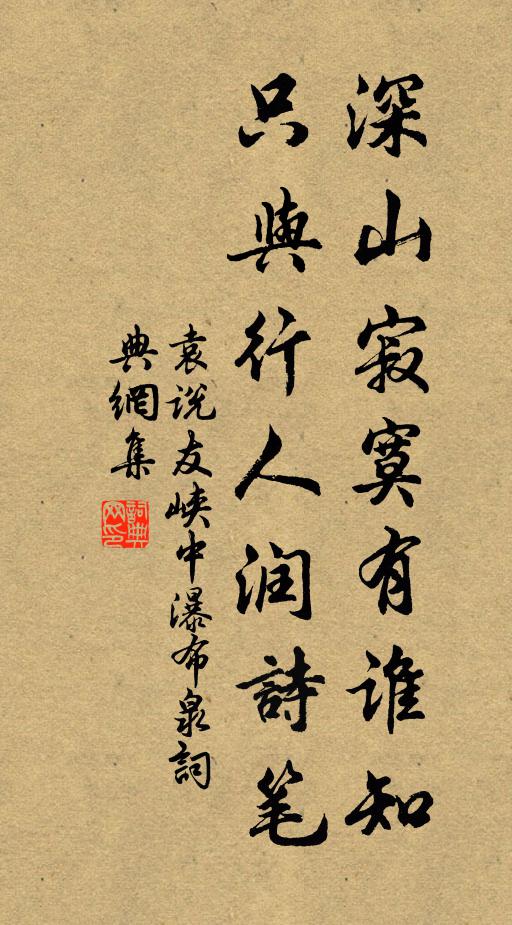 深山寂寞有谁知
只與行人润詩笔
袁说友峡中瀑布泉詞
典網集
詞典网印